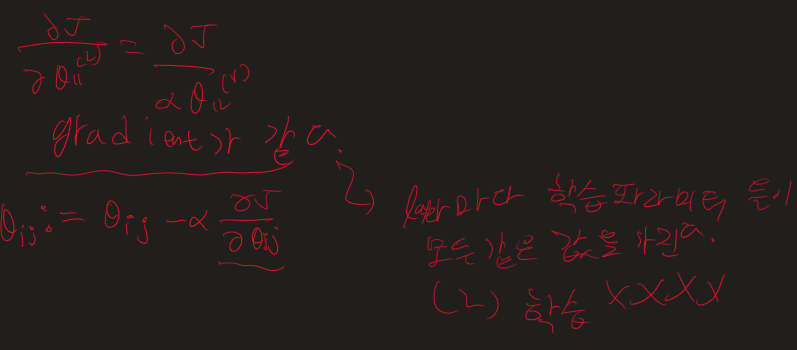 ∂J/∂θ₁₁⁽²⁾ = ∂J/∂θ₁₂⁽²⁾
gradient가 같다.
θij := θij - α ∂J/∂θij
layer마다 학습파라미터들이
모두 같은 값을 가진다.
학습 XXXX